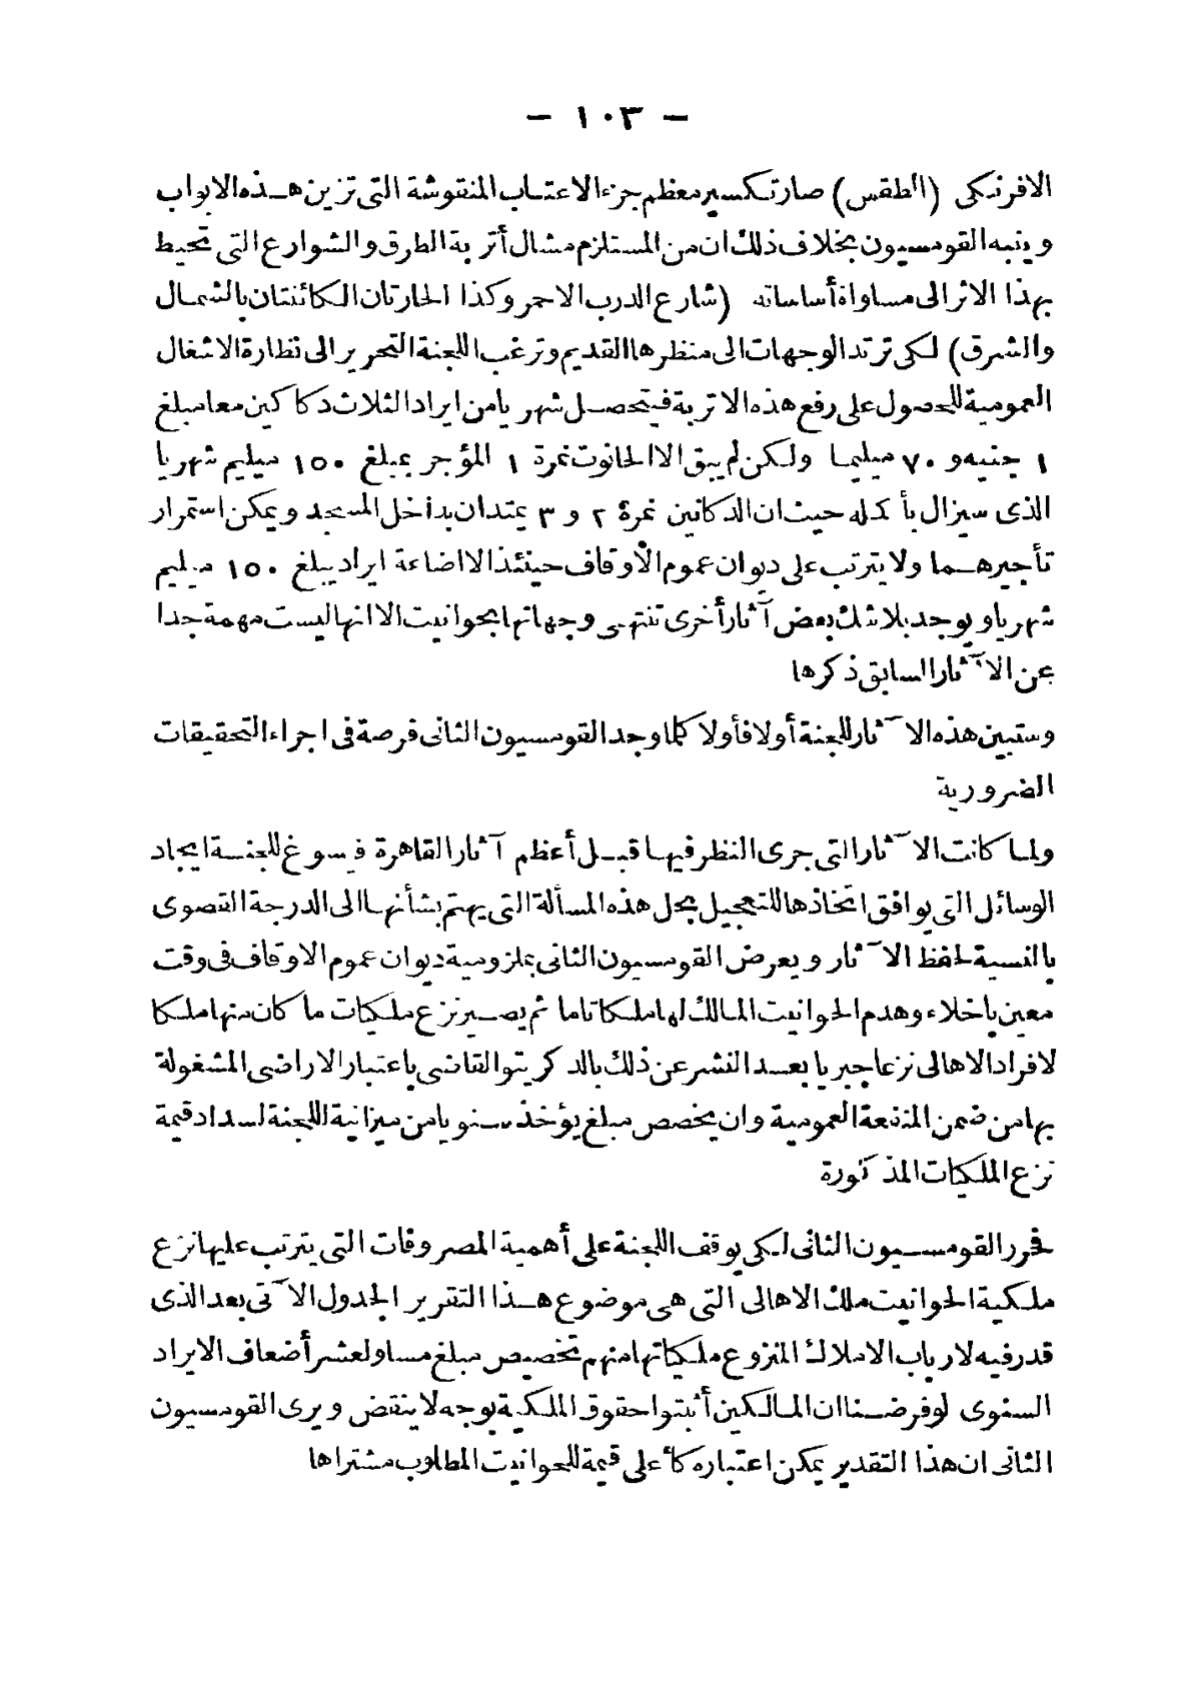 — ١٠٣ —
الافرنكى (الطقس) صار تكسير معظم جزء الاعتاب المنقوشة التى تزين هذه الابواب
وينبه القومسيون بخلاف ذلك ان من المستلزم مشال أتربة الطرق والشوارع التى تحيط
بهذا الاثر الى مساواة أساساته (شارع الدرب الاحمر وكذا الحارتان الكائنتان بالشمال
والشرق) لكى ترتد الوجهات الى منظرها القديم وترغب اللجنة التحرير الى نظارة الاشغال
العمومية للحصول على رفع هذه الاتربة فيتحصل شهريا من ايراد الثلاث دكاكين معا مبلغ
١ جنيه و ٧٠ ميليما ولكن لم يبق الا الحانوت نمرة ١ المؤجر بمبلغ ١٥٠ ميليم شهريا
الذى سيزال بأكمله حيث ان الدكانين نمرة ٢ و ٣ يمتدان بداخل المسجد ويمكن استمرار
تأجيرهما ولا يترتب على ديوان عموم الأوقاف حينئذ الا اضاعة ايراد يبلغ ١٥٠ ميليم
شهريا ويوجد بلا شك بعض آثار أخرى تنتهى وجهاتها بحوانيت الا انها ليست مهمة جدا
عن الآثار السابق ذكرها
وستبين هذه الآثار للجنة أولا فأولا كلما وجد القومسيون الثانى فرصة فى اجراء التحقيقات
الضرورية
ولما كانت الآثار التى جرى النظر فيها قبل أعظم آثار القاهرة فيسوغ للجنة ايجاد
الوسائل التى يوافق اتخاذها للتعجيل بحل هذه المسألة التى يهتم بشأنها الى الدرجة القصوى
بالنسبة لحفظ الآثار ويعرض القومسيون الثانى بملزومية ديوان عموم الاوقاف فى وقت
معين باخلاء وهدم الحوانيت المالك لها ملكا تاما ثم يصير نزع ملكيات ما كان منها ملكا
لافراد الاهالى نزعا جبريا بعد النشر عن ذلك بالدكريتو القاضى باعتبار الاراضى المشغولة
بها من ضمن المنفعة العمومية وان يخصص مبلغ يؤخذ سنويا من ميزانية اللجنة لسداد قيمة
نزع الملكيات المذكورة
فحرر القومسيون الثانى لكى يوقف اللجنة على أهمية المصروفات التى يترتب عليها نزع
ملكية الحوانيت ملك الاهالى التى هى موضوع هذا التقرير الجدول الآتى بعد الذى
قدر فيه لارباب الاملاك المنزوع ملكياتها منهم تخصيص مبلغ مساو لعشر أضعاف الايراد
السنوى لو فرضنا ان المالكين أثبتوا حقوق الملكية بوجه لا ينقض ويرى القومسيون
الثانى ان هذا التقدير يمكن اعتباره كأعلى قيمة للحوانيت المطلوب مشتراها